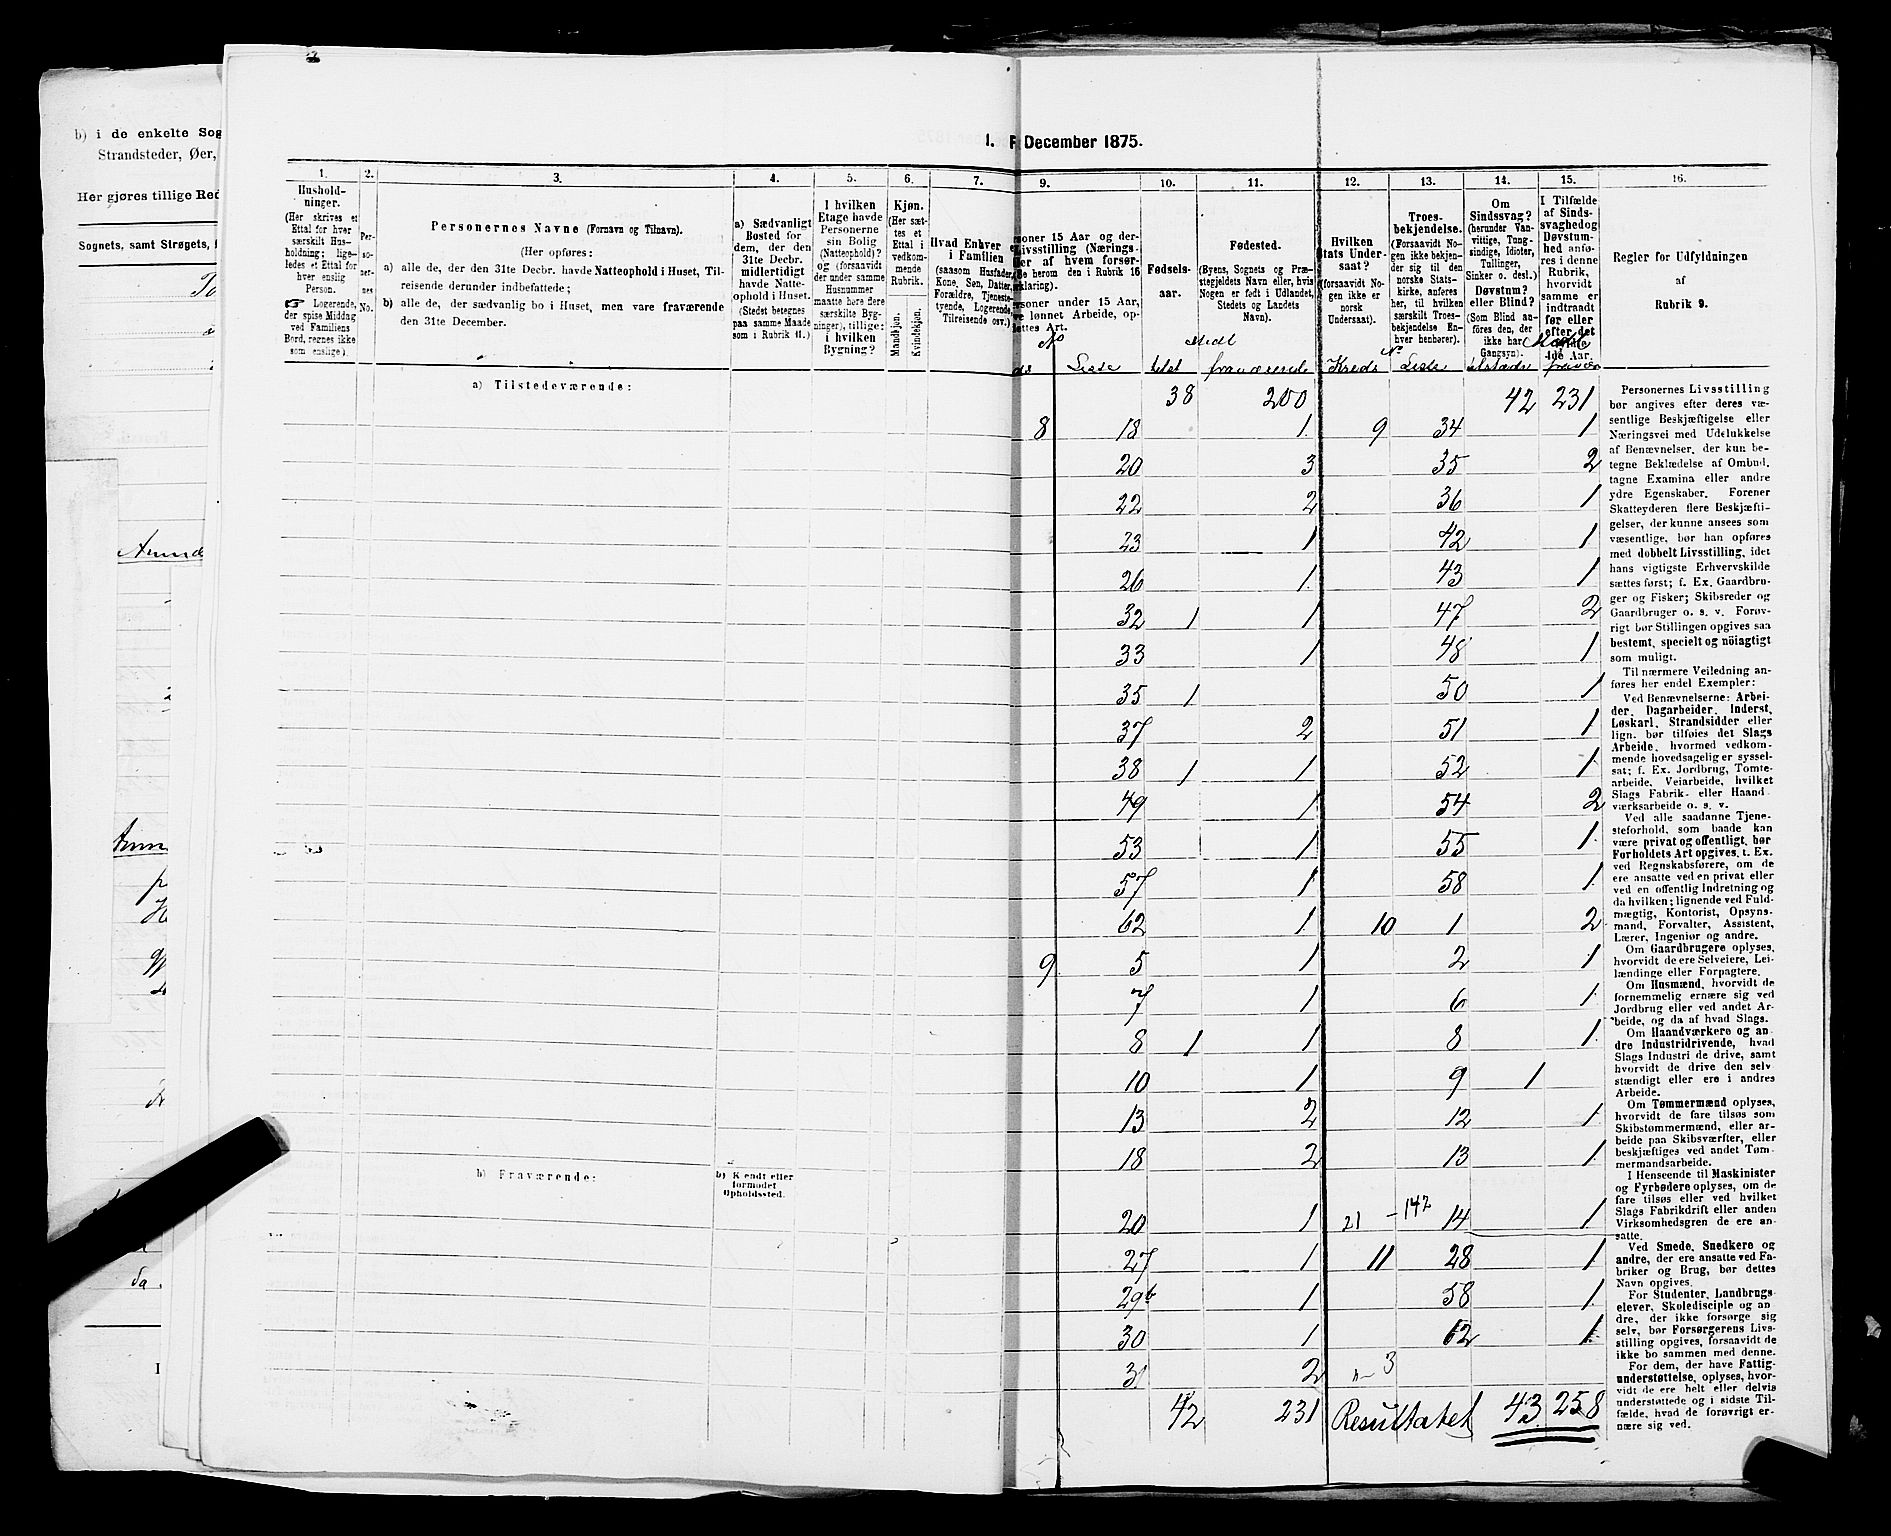 b) i de enkelte Sog
Strandsteder, Øer,
Her gjøres tillige Red
Sognets, samt Strøgets,
da
1. December 1875.
1.
2.
3.
4.
5.
6.
7.
9.
10.
11.
12.
13.
14.
15.
16.
Hushold-
ninger.
(Her skrives et
Ettal for hver
særskilt Hus-
holdning; lige-
ledes et Ettal for
hver enslig
Person.
☞ Logerende,
der spise Middag
ved Familiens
Bord, regnes ikke
som enslige).
Per-
so-
ner-
nes
No.
Personernes Navne (Fornavn og Tilnavn).
(Her opføres:
a) alle de, der den 31te Decbr. havde Natteophold i Huset, Til-
reisende derunder indbefattede;
b) alle de, der sædvanlig bo i Huset, men vare fraværende
den 31te December.
a) Sædvanligt
Bosted for
dem, der den
31te Decbr.
midlertidigt
havde Natte-
ophold i Huset.
(Stedet betegnes
paa samme Maade
som i Rubrik 11.)
I hvilken
Etage havde
Personerne
sin Bolig
(Natteophold)?
og (forsaavidt
der under samme
Husnummer
maatte høre flere
særskilte Byg-
ninger), tillige:
i hvilken
Bygning?
Kjøn.
(Her sæt-
tes et
Ettal i
vedkom-
mende
Rubrik.
Mandkjøn.
Kvindekjøn.
Hvad Enhver
i Familien
(saasom Husfader,
Kone, Søn, Datter,
Forældre, Tjeneste-
tyende, Logerende,
Tilreisende osv.)
soner 15 Aar og der-
Livsstilling (Nærings-
ler af hvem forsør-
(Se herom den i Rubrik 16
klaring).
soner under 15 Aar,
ve lønnet Arbeide, op-
dettes Art.
Fødsels-
aar.
Fødested.
(Byens, Sognets og Præ-
stegjeldets Navn eller, hvis
Nogen er født i Udlandet,
Stedets og Landets
Navn).
Hvilken
Stats Under-
saat?
(forsaavidt No-
gen ikke er
norsk
Undersaat).
Troes-
bekjendelse.
(Forsaavidt No-
gen ikke bekjen-
der sig til den
norske Stats-
kirke, anføres
her, til hvilken
særskilt Troes-
bekjendelse En-
hver henhører).
Om
Sindssvag?
(herunder Van-
vittige, Tung-
sindige, Idioter,
Tullinger,
Sinker o. desl.)
Døvstum?
eller Blind?
(Som Blind an-
føres den, der
ikke har
Gangsyn).
I Tilfælde
af Sinds-
svaghed og
Døvstum-
hed anfø-
res i denne
Rubrik,
hvorvidt
samme er
indtraadt
før eller
efter det
4de Aar.
Regler for Udfyldningen
af
Rubrik 9.
No
Liste
tilst
Midl
fraværende
Kreds
No
Liste
tilstede
Midl
fravær
a) Tilstedeværende:
38 200 42 231
8 18 1 9 34 1
20 3 35 2
22 2 36 1
23 1 42 1
26 1 43 1
32 1 1 47 2
33 1 48 1
35 1 50 1
37 2 51 1
38 1 1 52 1
49 1 54 2
53 1 55 1
57 1 58 1
62 1 10 1 2
9 5 1 2 1
7 1 6 1
8 1 1 8 1
10 1 9 1
13 2 12 1
18 2 13 1
b) Fraværende:
b) Kjendt eller
formodet
Opholdssted.
20 1 21 - 142 14 1
27 1 11 28 1
29b 1 58 1
30 1 62 1
31 2 3
42 231 Resultatet 43 258
Personernes Livsstilling
bør angives efter deres væ-
sentlige Beskjæftigelse eller
Næringsvei med Udelukkelse
af Benævnelser, der kun be-
tegne Beklædelse af Ombud,
tagne Examina eller andre
ydre Egenskaber. Forener
Skatteyderen flere Beskjæfti-
gelser, der kunne ansees som
væsentlige, bør han opføres
med dobbelt Livsstilling, idet
hans vigtigste Erhvervskilde
sættes først; f. Ex. Gaardbru-
ger og Fisker; Skibsreder og
Gaardbruger o. s. v. Forøv-
rigt bør Stillingen opgives saa
bestemt, specielt og nöiagtigt
som muligt.
Til nærmere Veiledning an-
føres her endel Exempler:
Ved Benævnelserne: Arbei-
der, Dagarbeider, Inderst,
Løskarl, Strandsidder eller
lign. bør tilføies det Slags
Arbeide, hvormed vedkom-
mende hovedsagelig er syssel-
sat; f. Ex. Jordbrug, Tomte-
arbeide, Veiarbeide, hvilket
Slags Fabrik- eller Haand-
værksarbeide o. s. v.
Ved alle saadanne Tjene-
steforhold, som baade kan
være privat og offentligt, bør
Forholdets Art opgives, t. Ex.
ved Regnskabsførere, om de
ere ansatte ved en privat eller
ved en offentlig Indretning og
da hvilken; lignende ved Fuld-
mægtig, Kontorist, Opsyns-
mand, Forvalter, Assistent,
Lærer, Ingeniør og andre.
Om Gaardbrugere oplyses,
hvorvidt de ere Selveiere, Lei-
lændinge eller Forpagtere.
Om Husmænd, hvorvidt de
fornemmelig ernære sig ved
Jordbrug eller ved andet Ar-
beide, og da af hvad Slags.
Om Haandværkere og an-
dre Industridrivende, hvad
Slags Industri de drive, samt
hvorvidt de drive den selv-
stændigt eller ere i andres
Arbeide.
Om Tømmermænd oplyses,
hvorvidt de fare tilsøs som
Skibstømmermænd, eller ar-
beide paa Skibsværfter, eller
beskjæftiges ved andet Tøm-
mermandsarbeide.
I Henseende til Maskinister
og Fyrbødere oplyses, om de
fare tilsøs eller ved hvilket
Slags Fabrikdrift eller anden
Virksomhedsgren de ere an-
satte.
Ved Smede, Snedkere og
andre, der ere ansatte ved Fa-
briker og Brug, bør dettes
Navn opgives.
For Studenter, Landbrugs-
elever, Skoledisciple og an-
dre, der ikke forsørge sig
selv, bør Forsørgerens Livs-
stilling opgives, forsaavidt de
ikke bo sammen med denne.
For dem, der have Fattig-
understøttelse, oplyses, hvor-
vidt de ere helt eller delvis
understøttede og i sidste Til-
fælde, hvad de forøvrigt er-
nære sig ved.